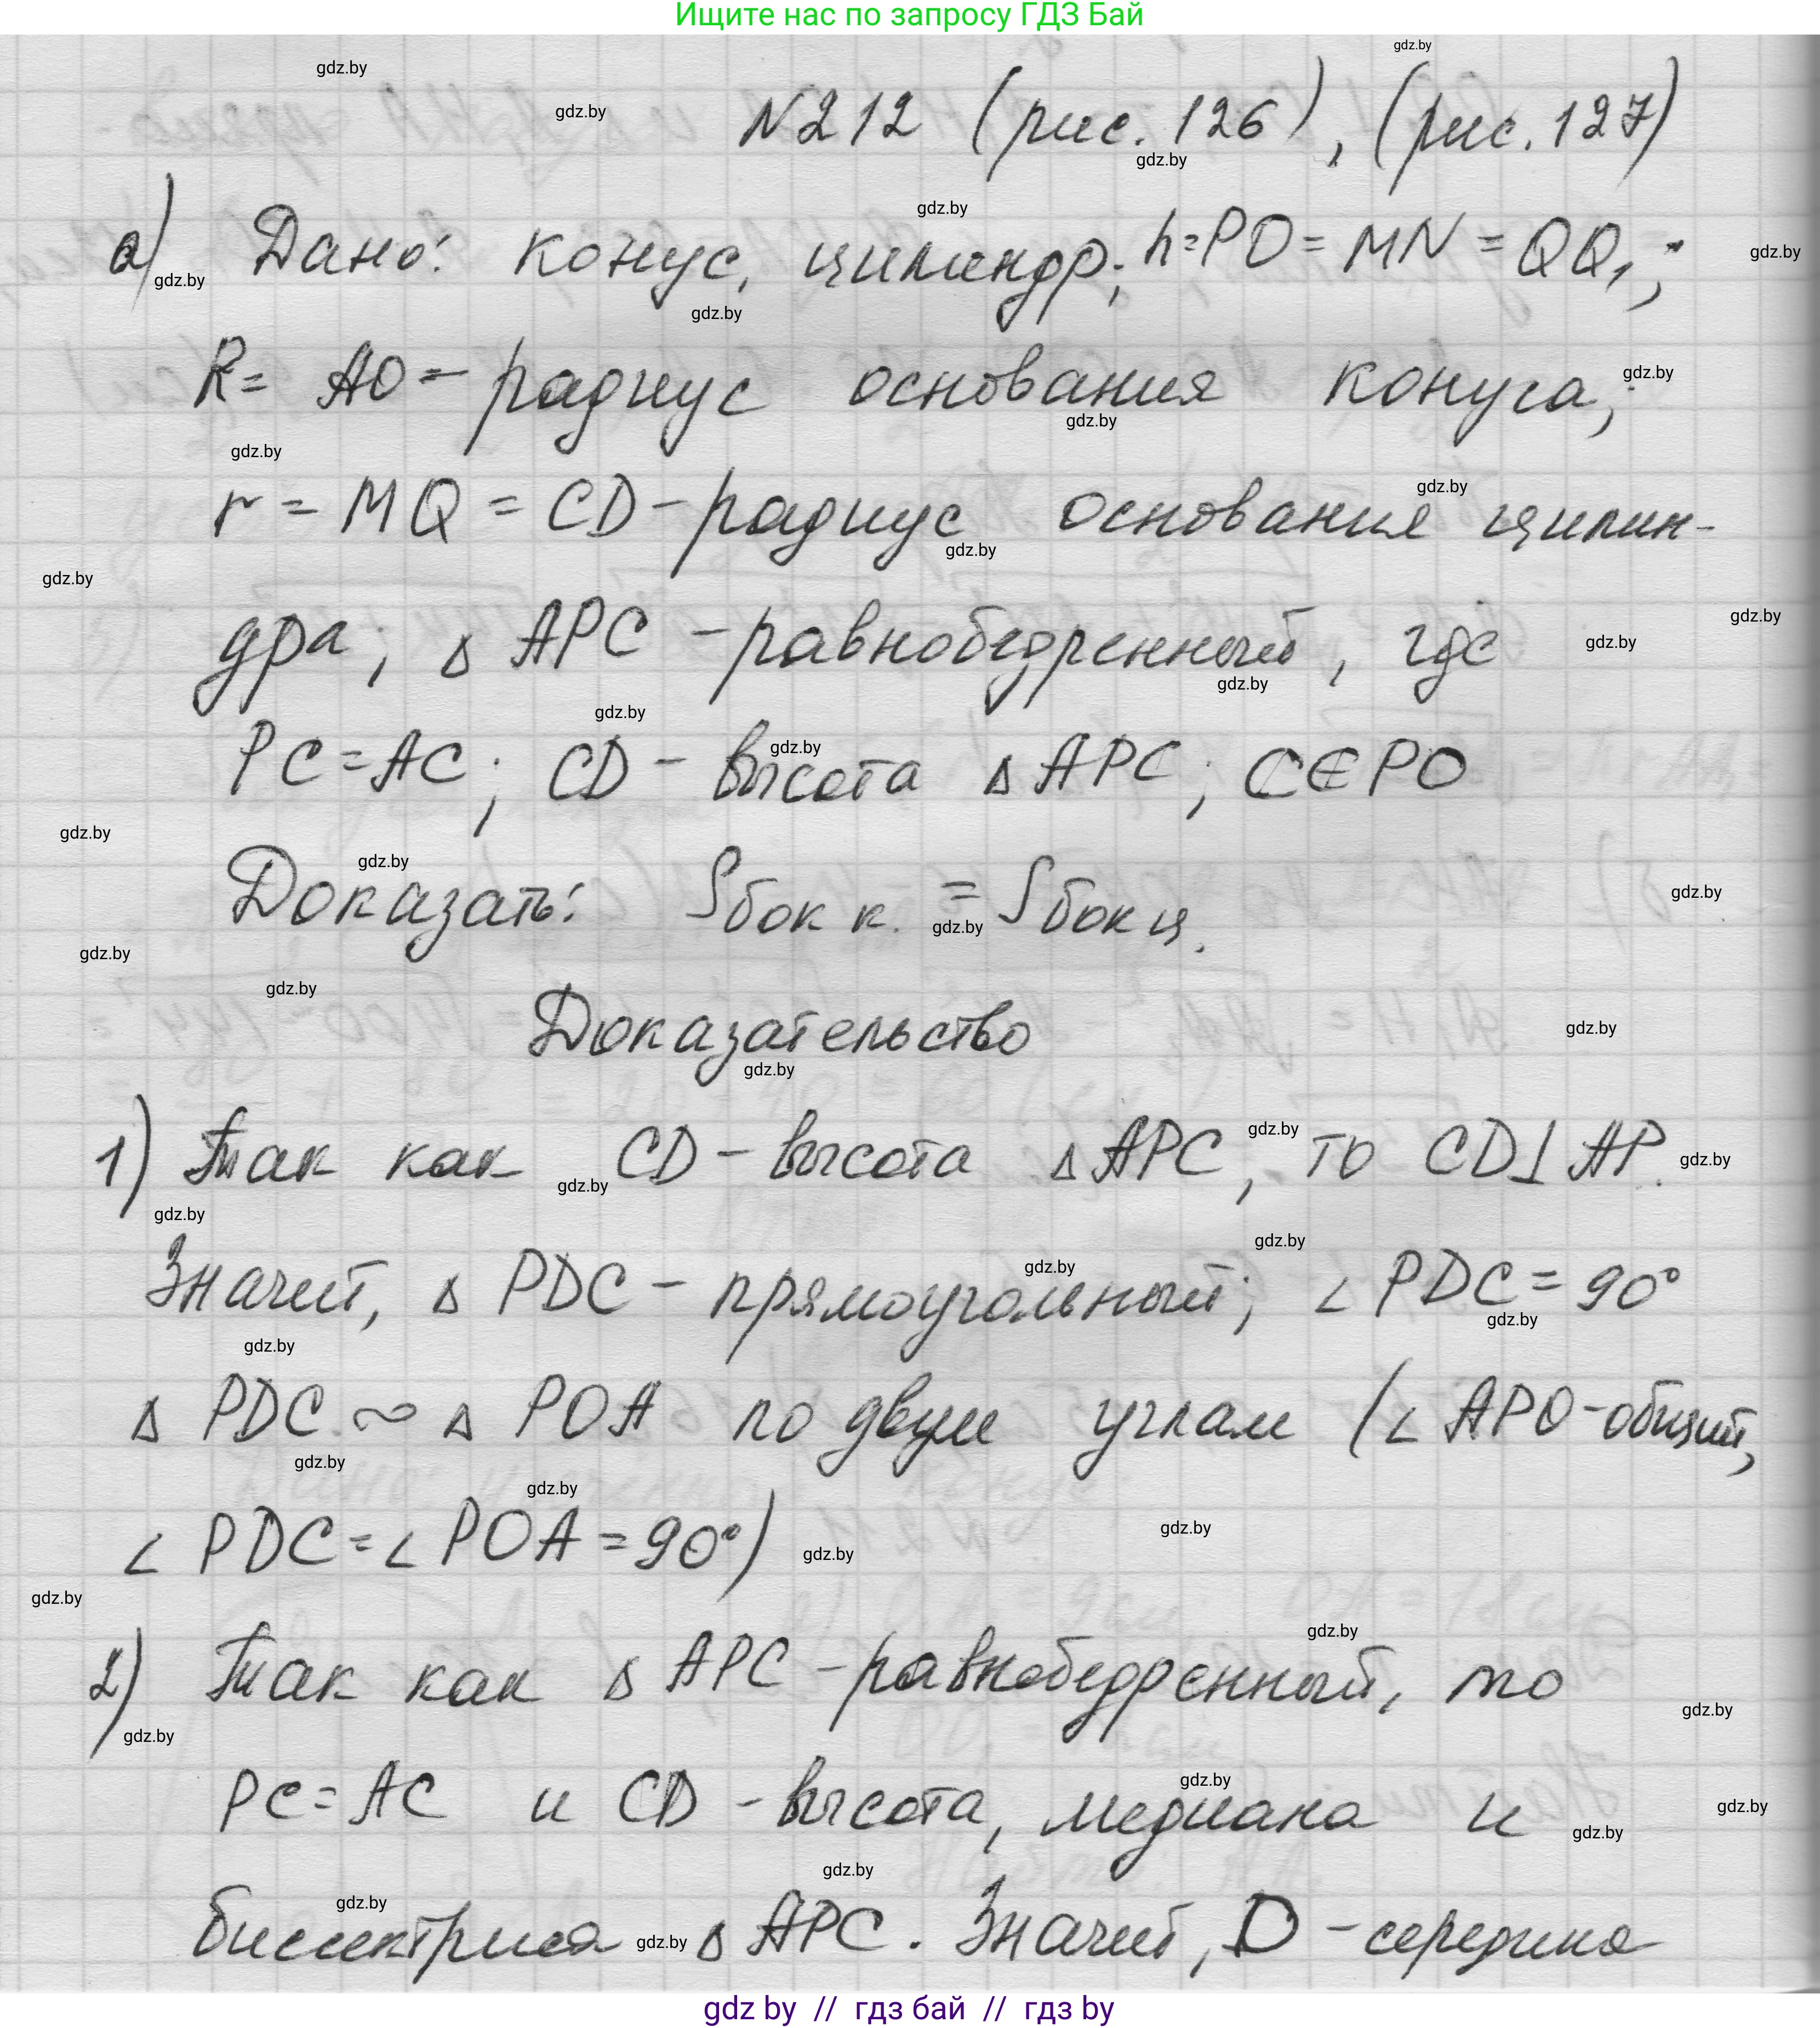 Ищите нас по запросу ГДЗ Бай
N212 (рис. 126), (рис. 127)
а) Дано: конус, цилиндр; h=PO=MN=QQ₁;
R= AO – радиус основания конуса;
r = MQ = CD – радиус основания цилин-
дра; Δ APC – равнобедренный, где
PC=AC; CD – высота Δ APC; C∈PO
Доказать: Sбок к. = Sбок ц.
Доказательство
1) Так как CD – высота Δ APC, то CD⊥AP.
Значит, Δ PDC – прямоугольный; ∠ PDC = 90°
Δ PDC ∾ Δ POA по двум углам (∠ APO – общий,
∠ PDC = ∠ POA = 90°)
2) Так как Δ APC – равнобедренный, то
PC = AC и CD – высота, медиана и
биссектриса Δ APC. Значит, D – середина
gdz by // гдз бай // гдз by